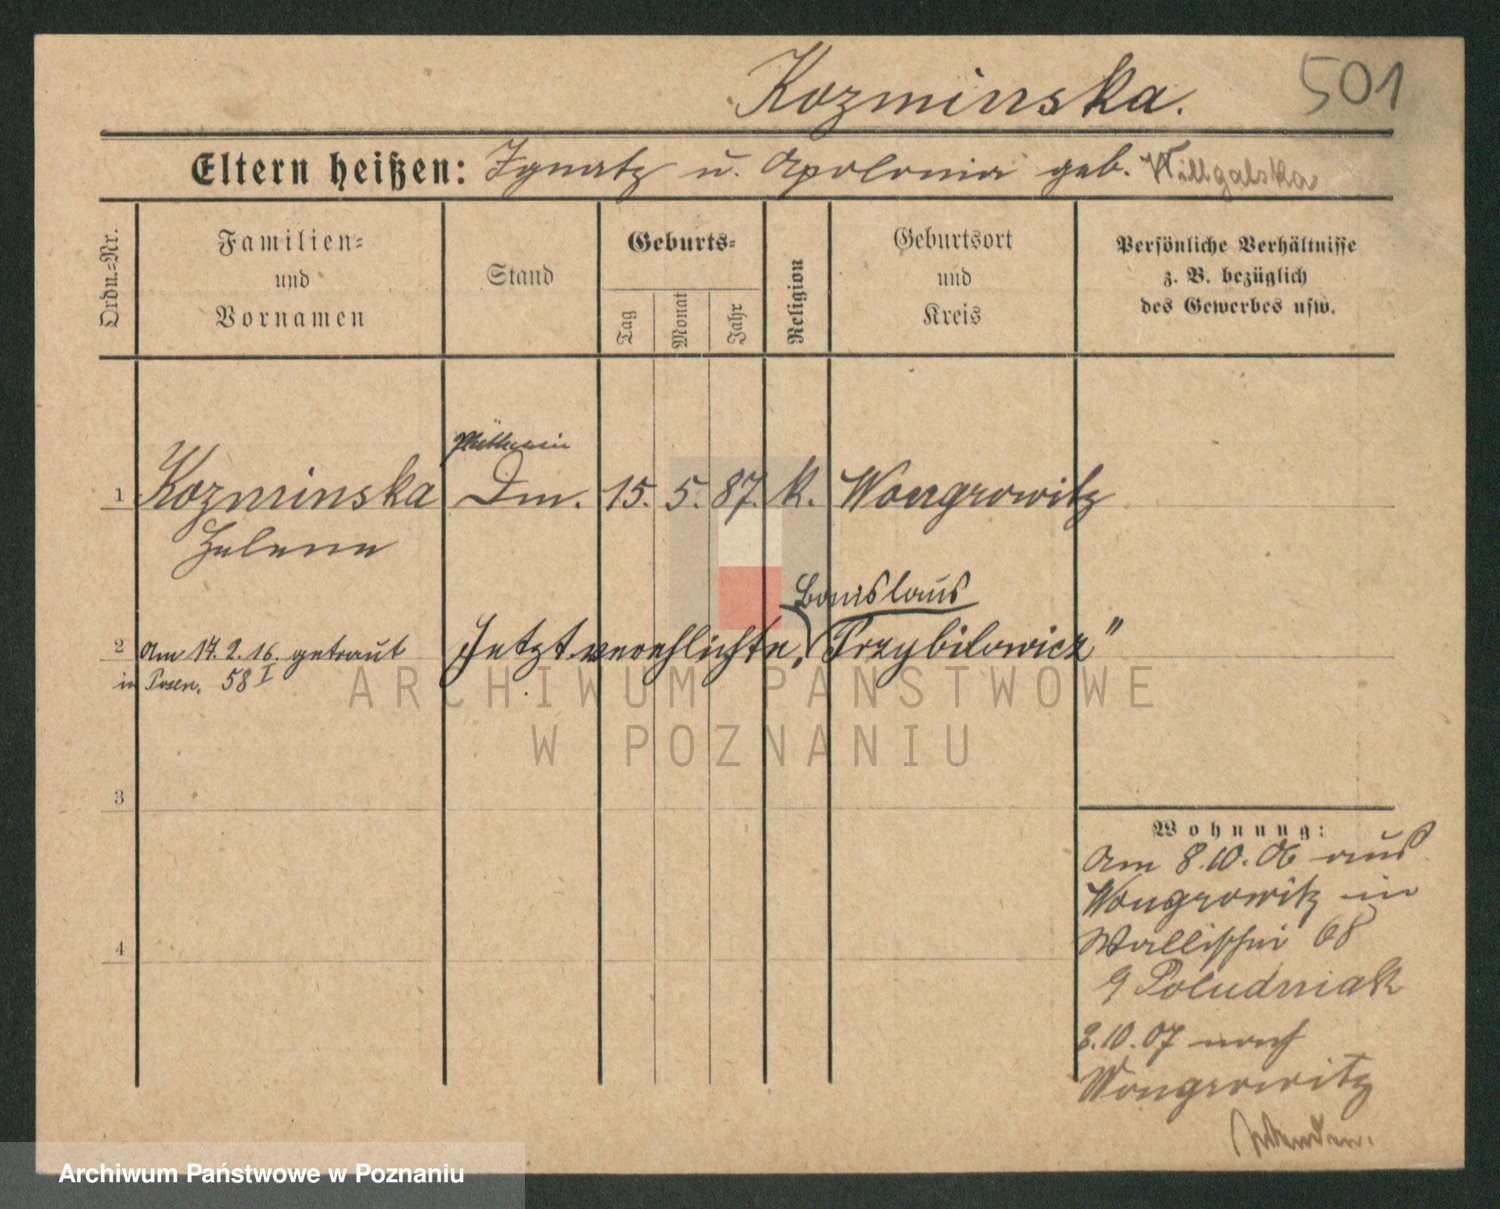 Kozminska.
501
Eltern heißen: Ignatz u. Apolonia geb.
Ordn.-Nr.
Familien-
und
Vornamen
Stand
Geburts-
Tag
Monat
Jahr
Religion
Geburtsort
und
Kreis
Persönliche Verhältnisse
z. B. bezüglich
des Gewerbes usw.
1 Kozminska Dm. 15. 5. 87. k. Wongrowitz
Helene
Bonislaus
2 Am 17. 2. 16 getraut Jetzt verehlichte, "Przybilowicz"
in Posen. 58 I
ARCHIWUM PAŃSTWOWE
W POZNANIU
3
4
Wohnung:
Am 8.10.06 aus
Wongrowitz in
Wallischei 68
Poludniak
2.10.07 nach
Wongrowitz
wenden.
Archiwum Państwowe w Poznaniu